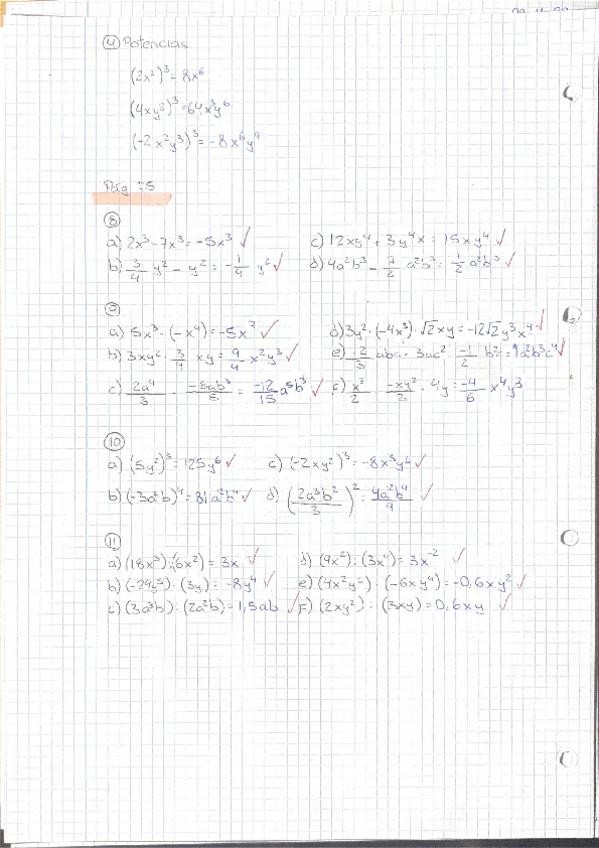 ④ Potencias
(2x²)³ = 8x⁶
(4xy²)³ = 64x³y⁶
(-2x²y³)³ = -8x⁶y⁹
Pág 75
⑧
a) 2x³ - 7x³ = -5x³ ✓ c) 12xy⁴ + 3y⁴x = 15xy⁴ ✓
b) 3/4 y² - y² = -1/4 y² ✓ d) 4a²b³ - 7/2 a²b³ = 1/2 a²b³ ✓
⑨
a) 5x³ · (-x⁴) = -5x⁷ ✓ d) 3y² · (-4x³) · √2 xy = -12√2 y³x⁴ ✓
b) 3xy² · 3/4 xy = 9/4 x²y³ ✓ e) -2/3 abc · 3ac² · -1/2 b² = 1a²b³c⁴ ✓
c) 2a⁴/3 · -6ab³/5 = -12/15 a⁵b³ ✓ f) x³/2 · -xy²/3 · 4y = -4/6 x⁴y³
⑩
a) (5y²)³ = 125y⁶ ✓ c) (-2xy²)³ = -8x³y⁶ ✓
b) (-3a²b)⁴ = 81a²b⁴ ✓ d) (2a³b²/3)² = 4a²b⁴/9 ✓
⑪
a) (18x³) : (6x²) = 3x ✓ d) (9x²) : (3x⁴) = 3x⁻² ✓
b) (-24y⁵) : (3y) = -8y⁴ ✓ e) (4x²y⁶) (-6xy⁴) = -0,6xy² ✓
c) (3a³b) : (2a²b) = 1,5ab ✓ f) (2xy²) : (3xy) = 0,6xy ✓